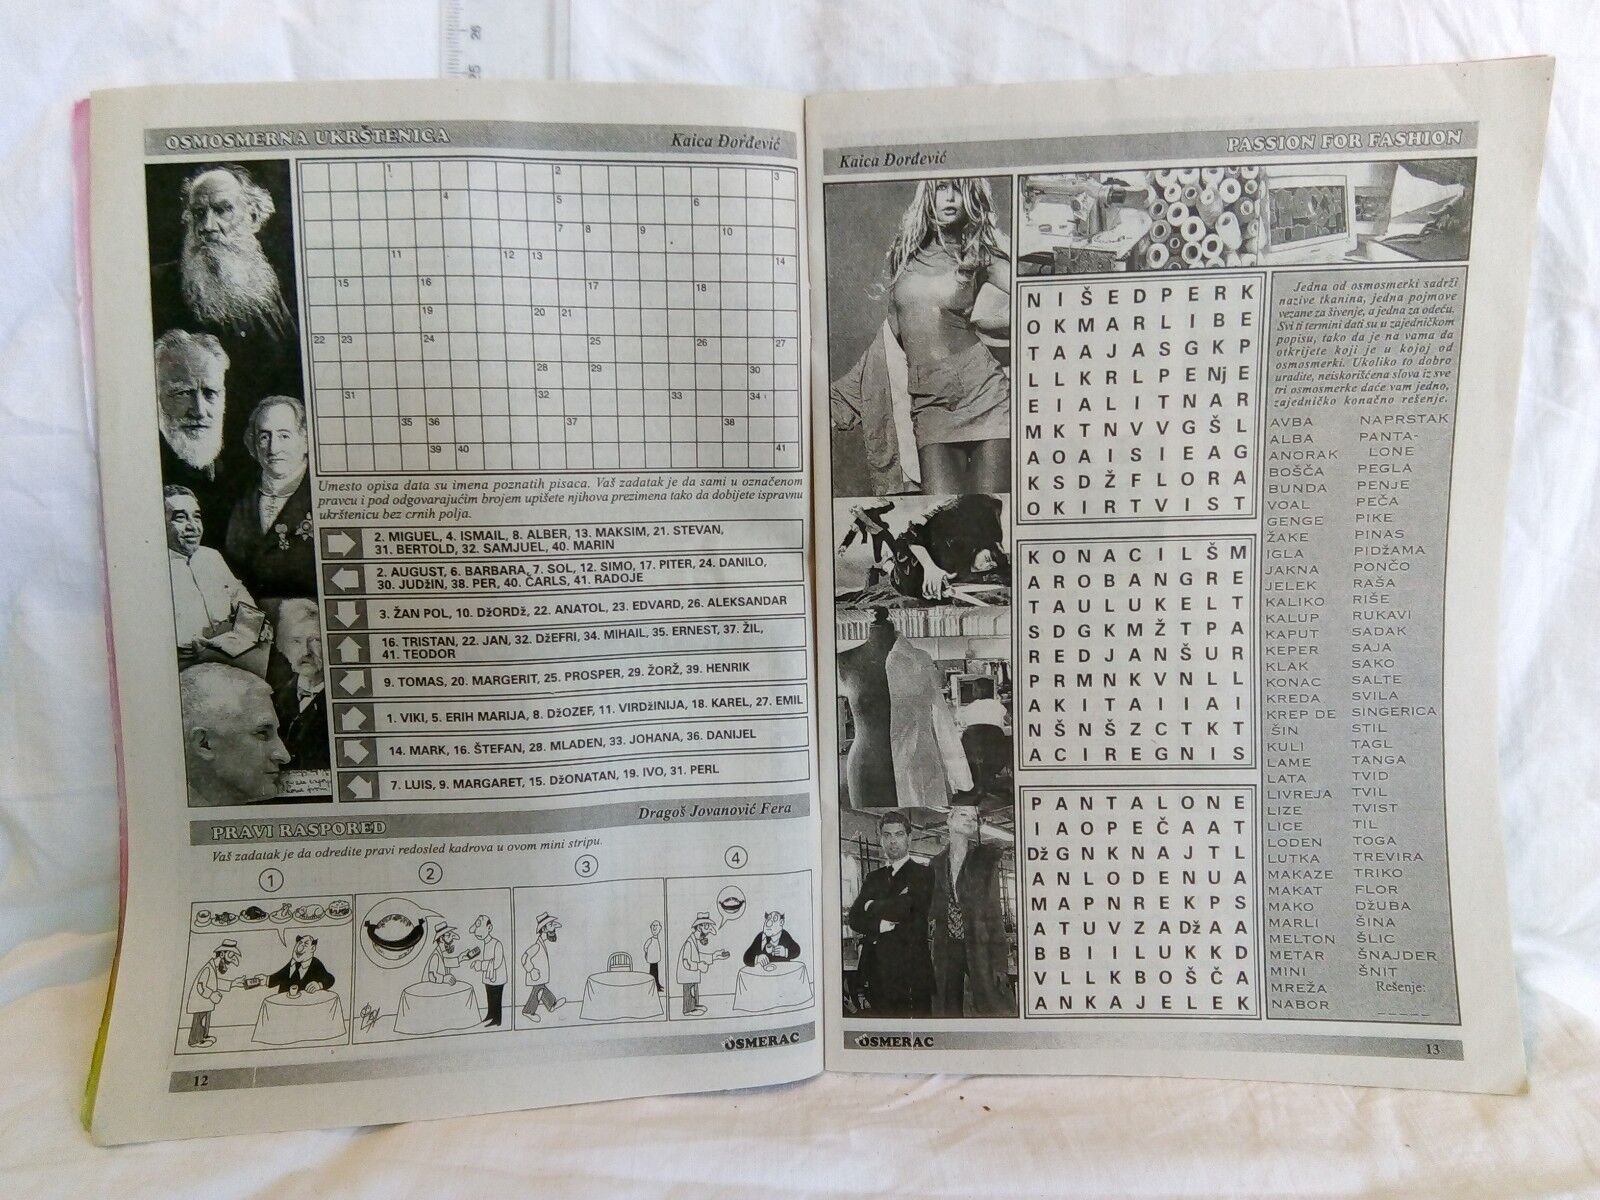 26
25
OSMOSMERNA UKRŠTENICA
Kaica Đorđević
1 2 3
4 5 6
7 8 9 10
11 12 13 14
15 16 17 18
19 20 21
22 23 24 25 26 27
28 29 30
31 32 33 34
35 36 37 38
39 40 41
Umesto opisa data su imena poznatih pisaca. Vaš zadatak je da sami u označenom
pravcu i pod odgovarajućim brojem upišete njihova prezimena tako da dobijete ispravnu
ukrštenicu bez crnih polja.
2. MIGUEL, 4. ISMAIL, 8. ALBER, 13. MAKSIM, 21. STEVAN,
31. BERTOLD, 32. SAMJUEL, 40. MARIN
2. AUGUST, 6. BARBARA, 7. SOL, 12. SIMO, 17. PITER, 24. DANILO,
30. JUDžIN, 38. PER, 40. ČARLS, 41. RADOJE
3. ŽAN POL, 10. DžORDž, 22. ANATOL, 23. EDVARD, 26. ALEKSANDAR
16. TRISTAN, 22. JAN, 32. DžEFRI, 34. MIHAIL, 35. ERNEST, 37. ŽIL,
41. TEODOR
9. TOMAS, 20. MARGERIT, 25. PROSPER, 29. ŽORŽ, 39. HENRIK
1. VIKI, 5. ERIH MARIJA, 8. DžOZEF, 11. VIRDžINIJA, 18. KAREL, 27. EMIL
14. MARK, 16. ŠTEFAN, 28. MLADEN, 33. JOHANA, 36. DANIJEL
7. LUIS, 9. MARGARET, 15. DžONATAN, 19. IVO, 31. PERL
PRAVI RASPORED
Dragoš Jovanović Fera
Vaš zadatak je da odredite pravi redosled kadrova u ovom mini stripu.
1
2
3
4
OSMERAC
12
Kaica Đorđević
PASSION FOR FASHION
N I Š E D P E R K
O K M A R L I B E
T A A J A S G K P
L L K R L P E Nj E
E I A L I T N A R
M K T N V V G Š L
A O A I S I E A G
K S D Ž F L O R A
O K I R T V I S T
K O N A C I L Š M
A R O B A N G R E
T A U L U K E L T
S D G K M Ž T P A
R E D J A N Š U R
P R M N K V N L L
A K I T A I I A I
N Š N Š Z C T K T
A C I R E G N I S
P A N T A L O N E
I A O P E Č A A T
Dž G N K N A J T L
A N L O D E N U A
M A P N R E K P S
A T U V Z A Dž A A
B B I I L U K K D
V L L K B O Š Č A
A N K A J E L E K
Jedna od osmosmerki sadrži
nazive tkanina, jedna pojmove
vezane za šivenje, a jedna za odeću.
Svi ti termini dati su u zajedničkom
popisu, tako da je na vama da
otkrijete koji je u kojoj od
osmosmerki. Ukoliko to dobro
uradite, neiskorišćena slova iz sve
tri osmosmerke daće vam jedno,
zajedničko konačno rešenje.
AVBA
ALBA
ANORAK
BOŠČA
BUNDA
VOAL
GENGE
ŽAKE
IGLA
JAKNA
JELEK
KALIKO
KALUP
KAPUT
KEPER
KLAK
KONAC
KREDA
KREP DE
ŠIN
KULI
LAME
LATA
LIVREJA
LIZE
LICE
LODEN
LUTKA
MAKAZE
MAKAT
MAKO
MARLI
MELTON
METAR
MINI
MREŽA
NABOR
NAPRSTAK
PANTA-
LONE
PEGLA
PENJE
PEČA
PIKE
PINAS
PIDŽAMA
PONČO
RAŠA
RIŠE
RUKAVI
SADAK
SAJA
SAKO
SALTE
SVILA
SINGERICA
STIL
TAGL
TANGA
TVID
TVIL
TVIST
TIL
TOGA
TREVIRA
TRIKO
FLOR
DŽUBA
ŠINA
ŠLIC
ŠNAJDER
ŠNIT
Rešenje:
_ _ _ _ _
OSMERAC
13